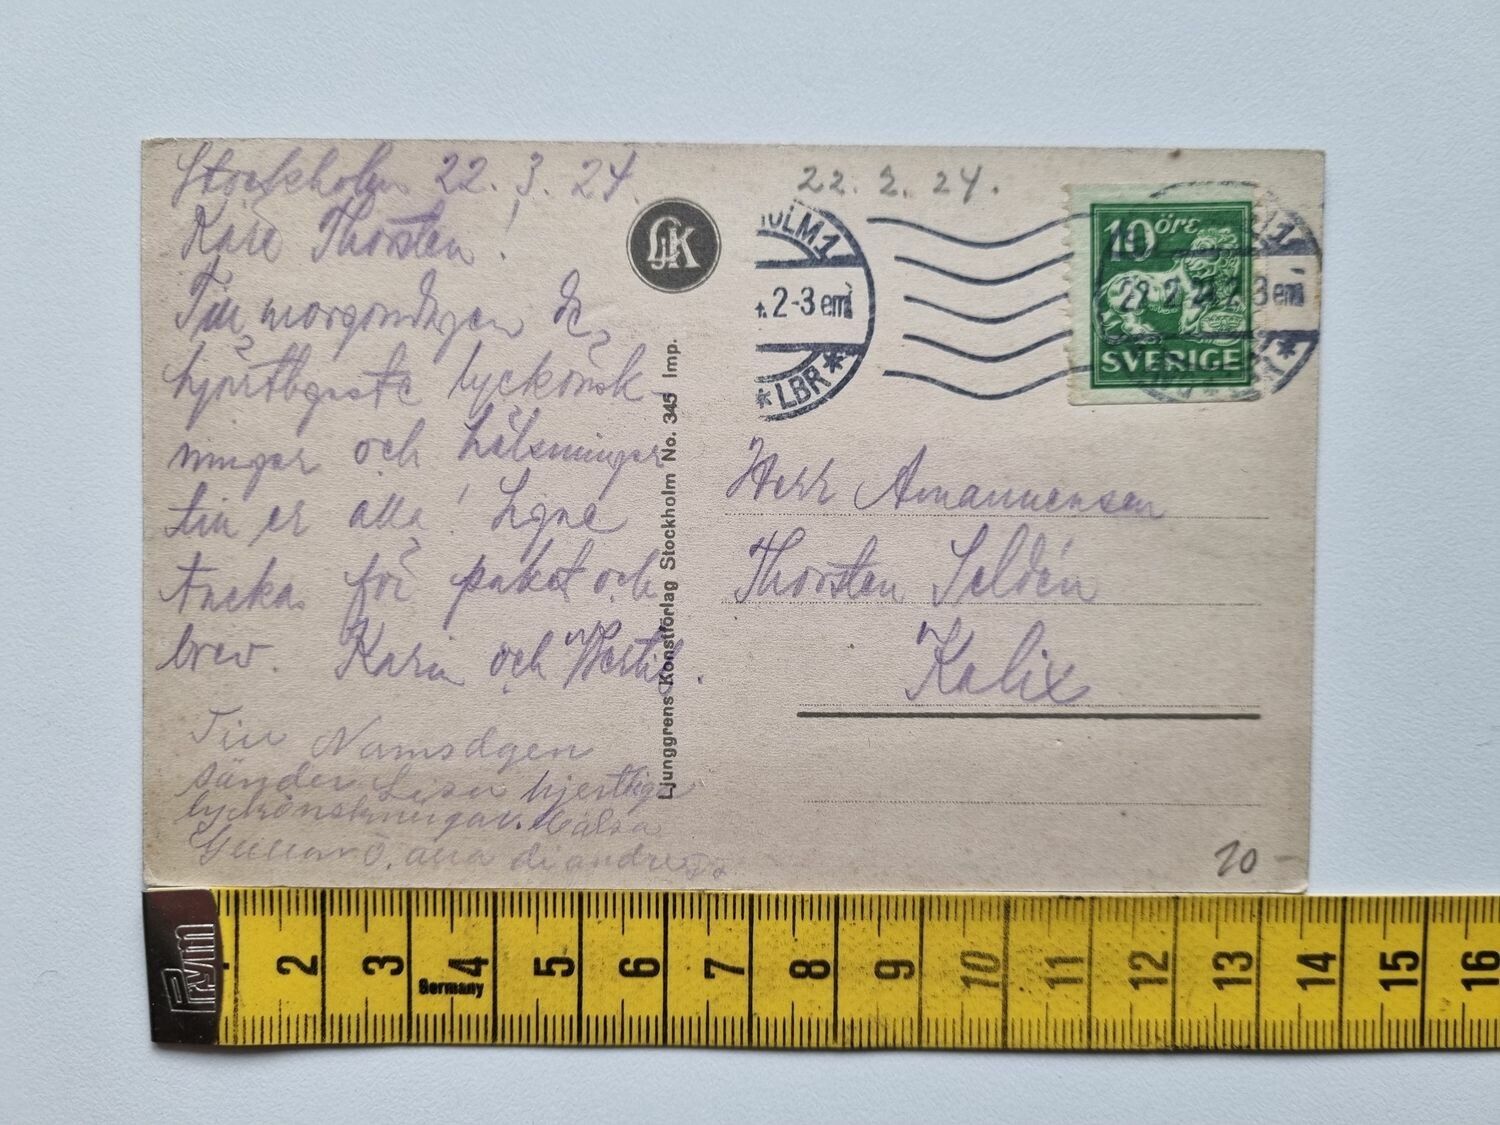 Stockholm 22. 3. 24.
Käre Thorsten!
Till morgondagen de
hjärtligaste lyckönsk-
ningar och hälsningar
till er alla! Ligne
tackar för paket och
brev. Karin och Bertil.
Till Namsdgen
sänder Lisa hjertliga
lyckönskningar. Hälsa
alla di andre
LjK
Ljunggrens Konstförlag Stockholm No. 345 Imp.
22. 2. 24.
HOLM 1
2-3 em
*LBR*
10 öre
22 2 24 2-3 em
SVERIGE
Herr Amanuensen
Thorsten Seldén
Kalix
20-
Prym
2 3 4 5 6 7 8 9 10 11 12 13 14 15 16
Germany